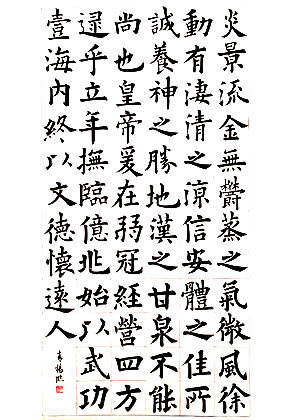 炎景流金無鬱蒸之氣微風徐
動有淒清之涼信安體之佳所
誠養神之勝地漢之甘泉不能
尚也皇帝爰在弱冠經營四方
逮乎立年撫臨億兆始以武功
壹海內終以文德懷遠人